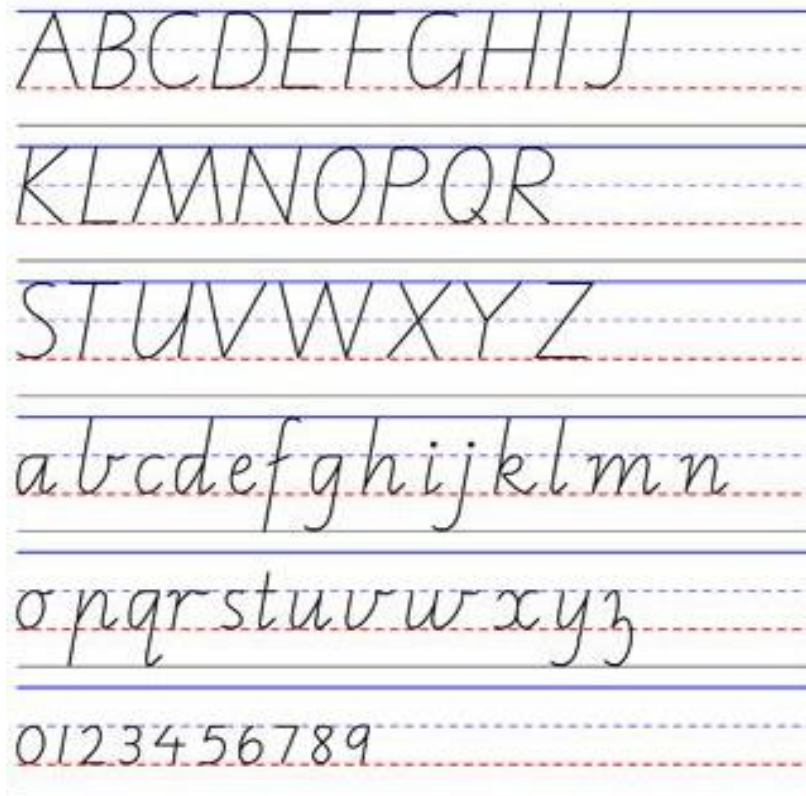 ABCDEFGHIJ
KLMNOPQR
STUVWXYZ
abcdefghijklmn
opqrstuvwxyz
0123456789